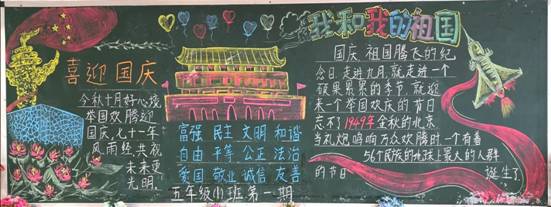 喜迎国庆
今秋十月好心烧
举国欢腾迎
国庆,七十一年
风雨经,共祝
未来更
光明.
富强 民主 文明 和谐
自由 平等 公正 法治
爱国 敬业 诚信 友善
五年级(1)班第一期
我和我的祖国
国庆,祖国腾飞的纪
今日,走进九月,就走进一个
硕果累累的季节,就迎
来一个举国欢庆的节日
忘不了1949年金秋的北京
当礼炮鸣响万众欢腾时一个有着
56个民族的地球上最大的人群
的节日 诞生了